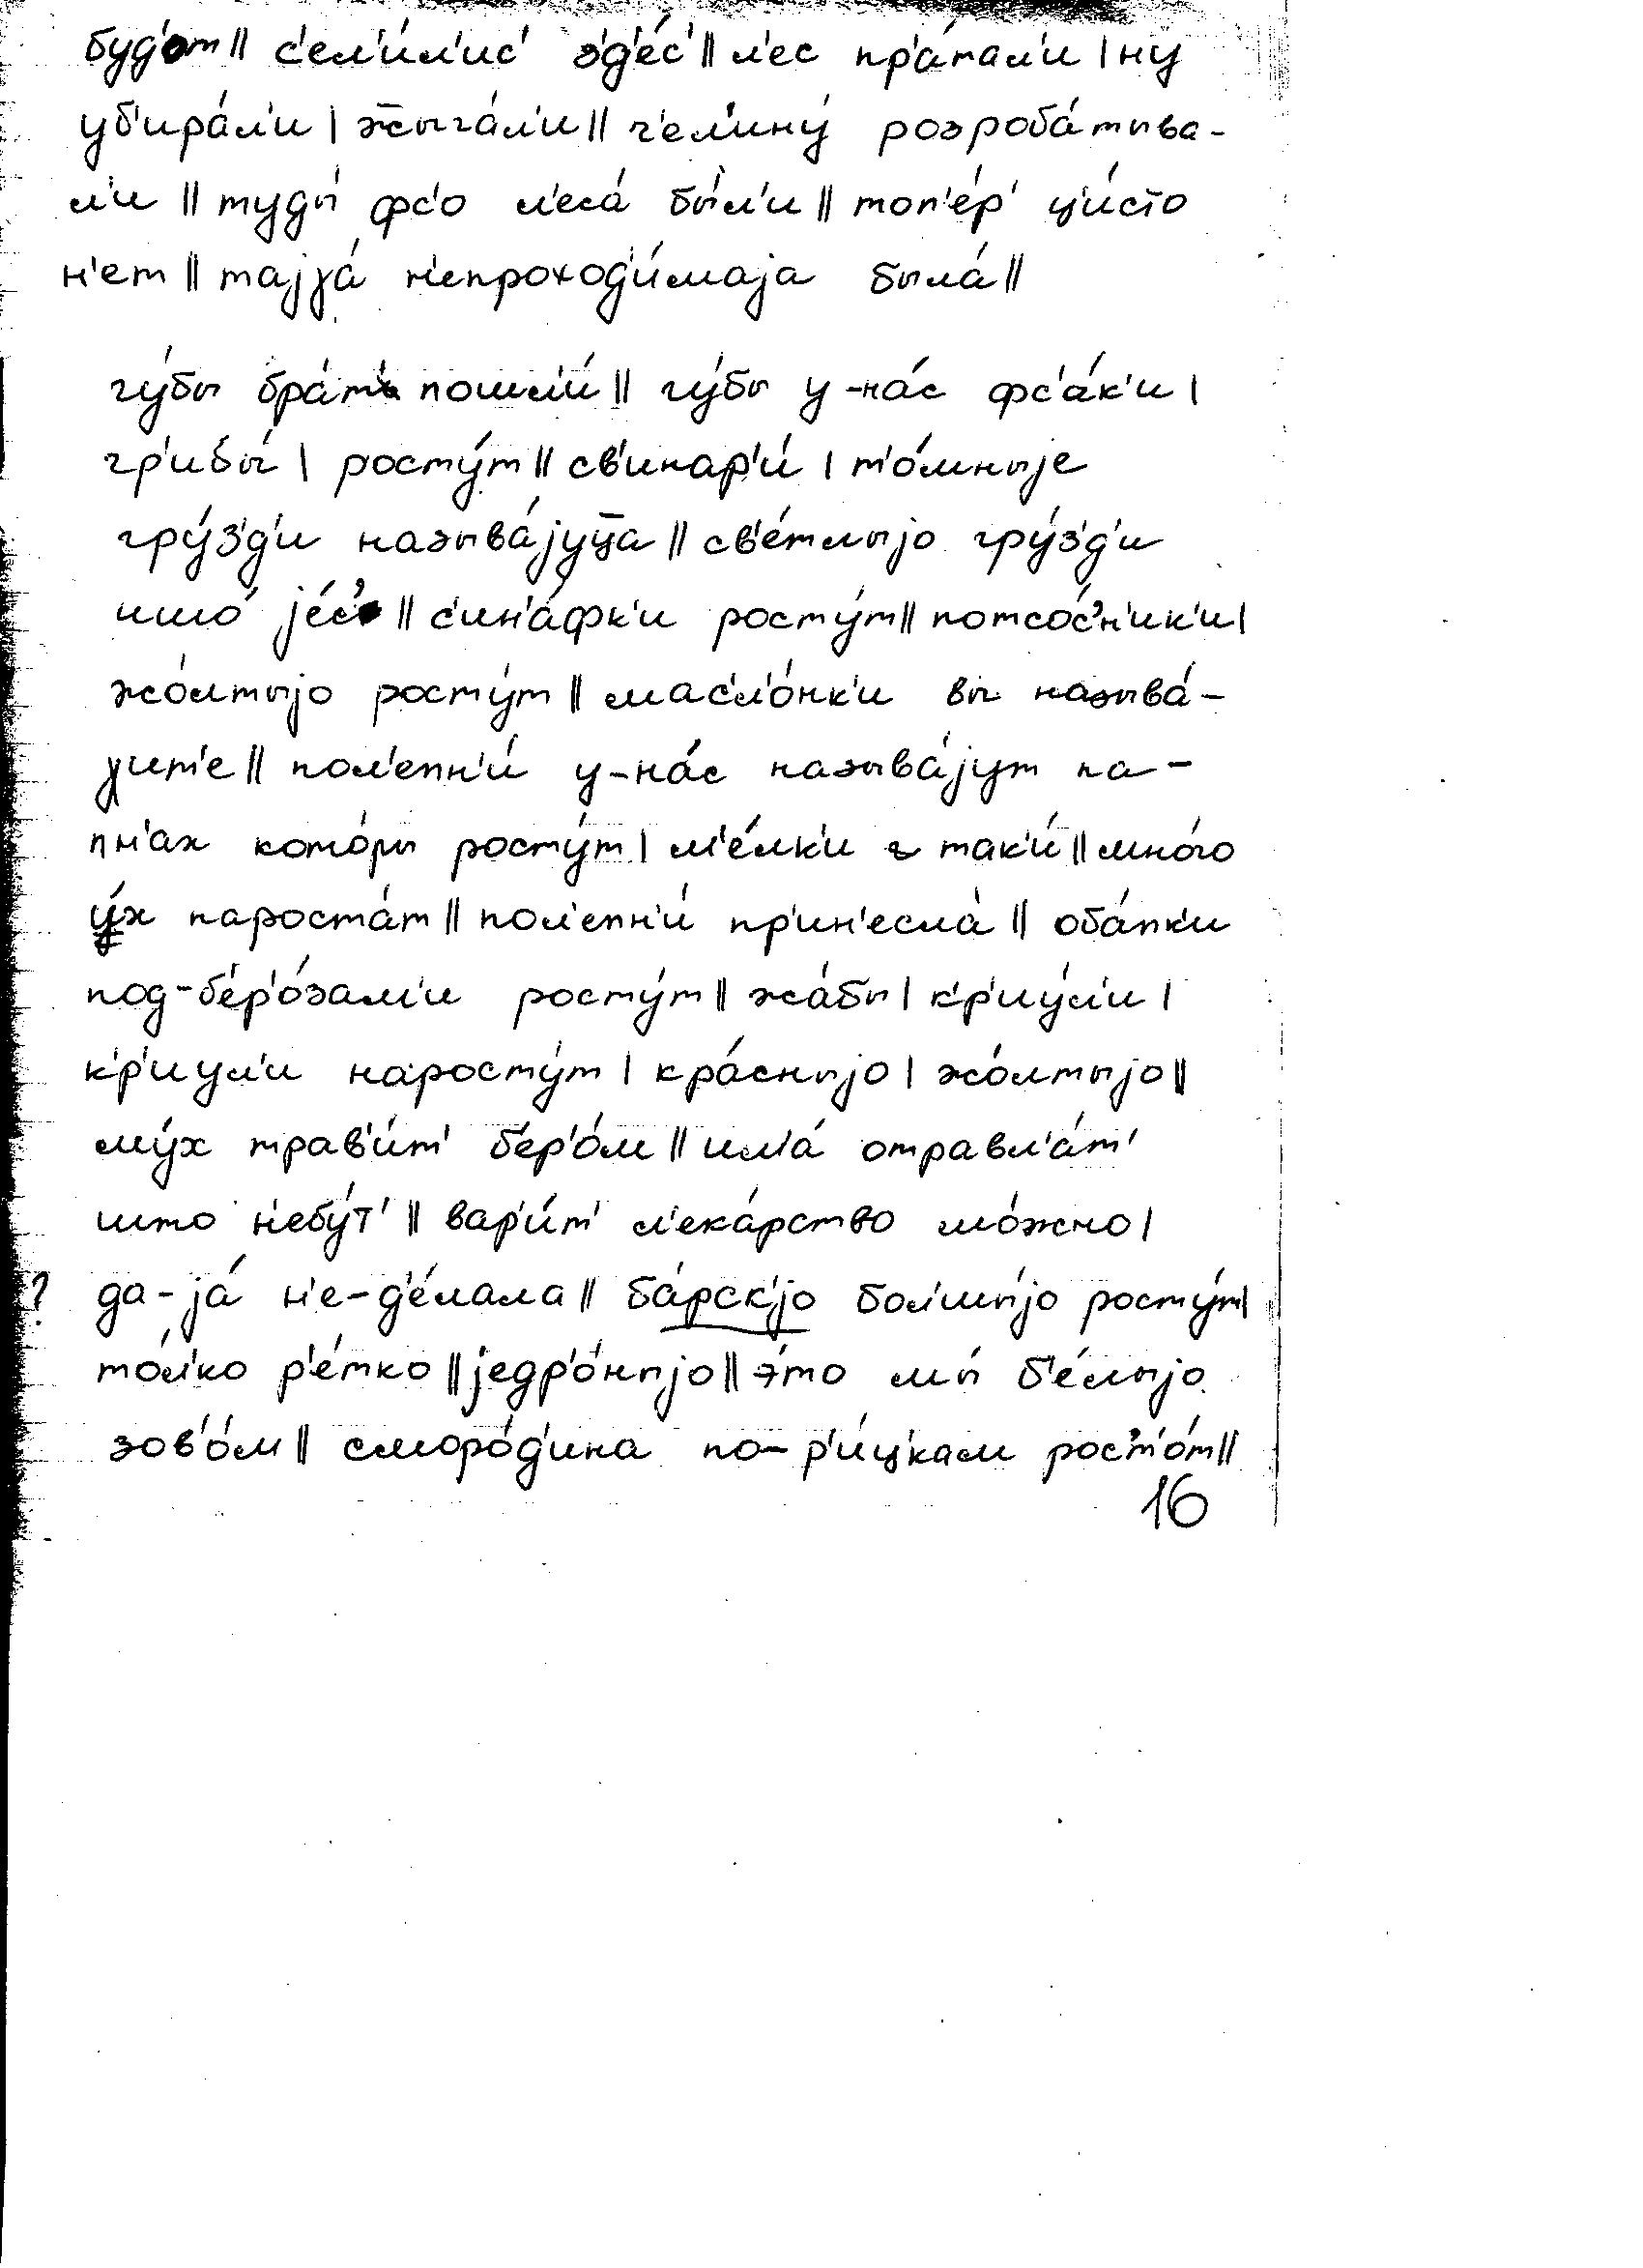 буд'от || с'ел'и́л'ис' з'д'е́с' || л'ес пр'а́тал'и | ну
уб'ира́л'и | ж̅ыга́л'и || ц'ел'ину́ розроба́тыва-
л'и || туды́ фс'о л'еса́ бы́л'и || топ'е́р' ц'и́сто
н'ет || тајγа́ н'епроход'и́маја была́ ||
гу́бы бра́т' пошл'и́ || гу́бы у-на́с фс'а́к'и |
гр'ибы́ | росту́т || св'инар'и́ | т'о́мныје
гру́з'д'и называ́јуц̅а || св'е́тлыјо гру́з'д'и
ишо́ је́с' || с'ин'а́фк'и росту́т || потсо́с'н'ик'и |
жо́лтыјо росту́т || мас'л'о́нк'и вы называ́-
јит'е || пол'епн'и́ у-на́с называ́јут на-
пн'ах кото́ры росту́т | м'е́лк'и так'и́ || мно́го
и́х нароста́т || пол'епн'и́ пр'ин'есла́ || оба́пк'и
под-б'ер'о́зам'и росту́т || жа́бы | к'р'иу́л'и |
к'р'иул'и наросту́т | кра́сныјо | жо́лтыјо ||
му́х трав'и́т' б'ер'о́м || им'а́ отравл'а́т'
што н'ебу́т' || вар'и́т' л'ека́рство мо́жно |
? да-ја́ н'е-д'е́лала || ба́рск'јо бол'шы́јо росту́т |
то́л'ко р'е́тко || једр'о́ныјо || э́то мы́ б'е́лыјо
зов'о́м || сморо́д'ина по-р'и́ц'кам рос'т'о́т ||
16